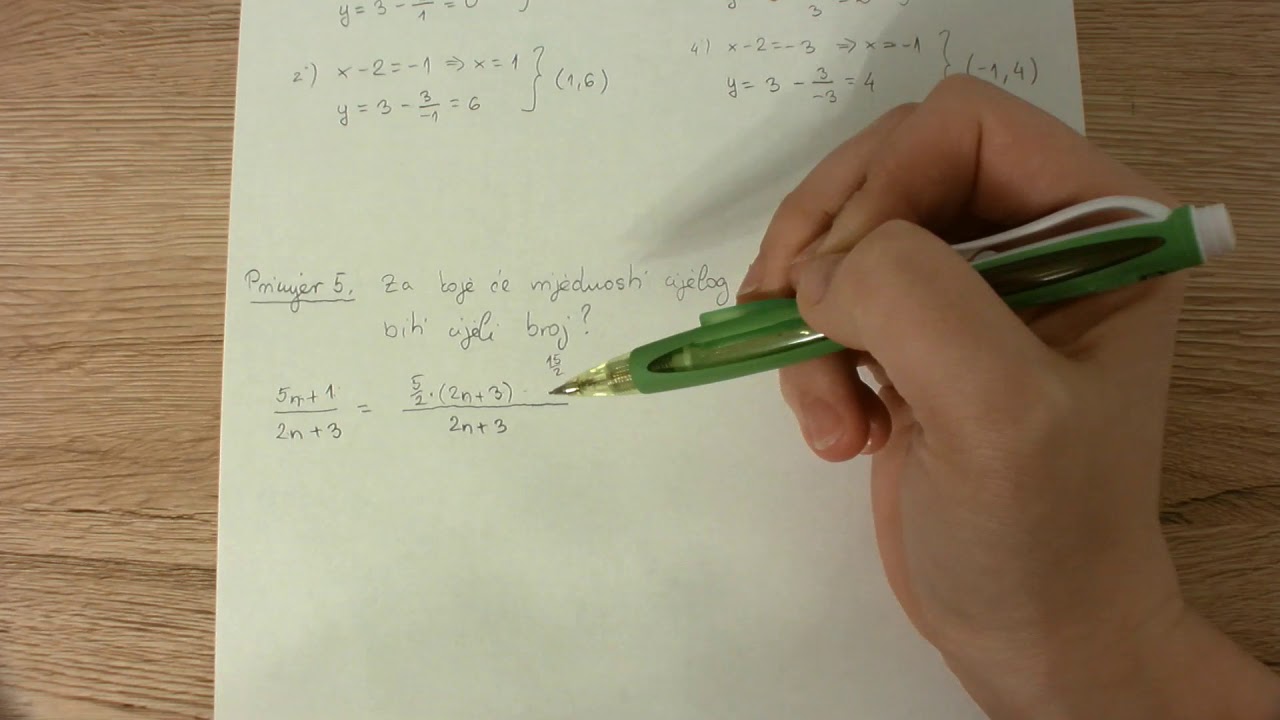 y = 3 - 3/1 = 0
2°) x - 2 = -1 ⇒ x = 1 } (1,6)
y = 3 - 3/-1 = 6
4°) x - 2 = -3 ⇒ x = -1 } (-1,4)
y = 3 - 3/-3 = 4
Primjer 5. Za koje će vrijednosti cijelog
biti cijeli broj?
15/2
(5n + 1)/(2n + 3) = (5/2 · (2n + 3) -)/(2n + 3)